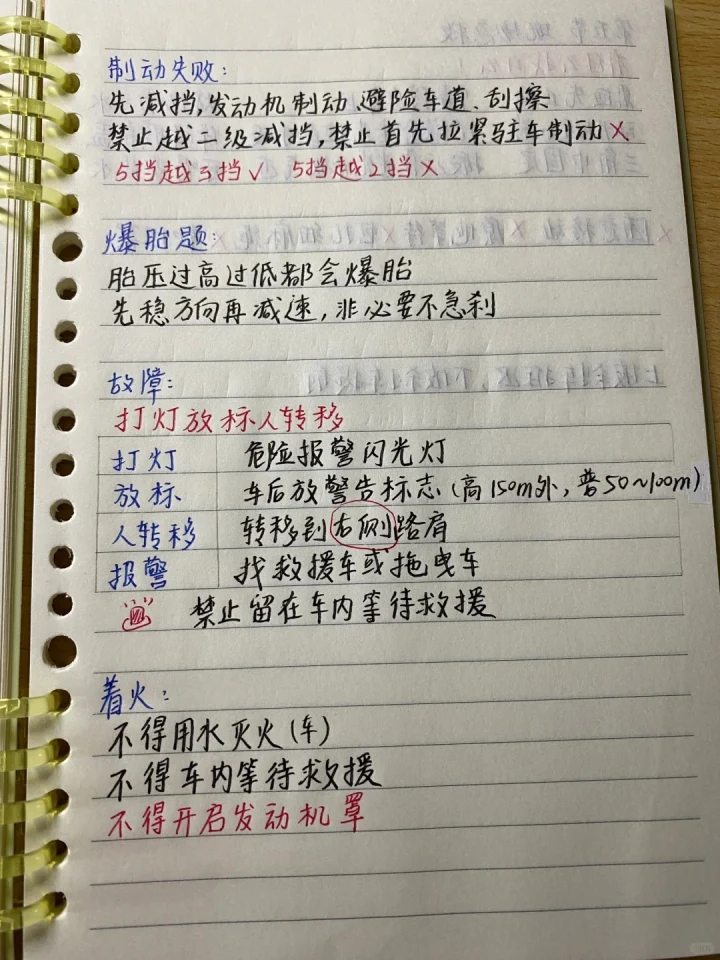 制动失败:
先减挡,发动机制动、避险车道、刮擦
禁止越二级减挡,禁止首先拉紧驻车制动×
5挡越3挡✓ 5挡越2挡×
爆胎题:
胎压过高过低都会爆胎
先稳方向再减速,非必要不急刹
故障:
打灯放标人转移
打灯 危险报警闪光灯
放标 车后放警告标志(高150m外,普50~100m)
人转移 转移到右侧路肩
报警 找救援车或拖曳车
禁止留在车内等待救援
着火:
不得用水灭火(车)
不得车内等待救援
不得开启发动机罩